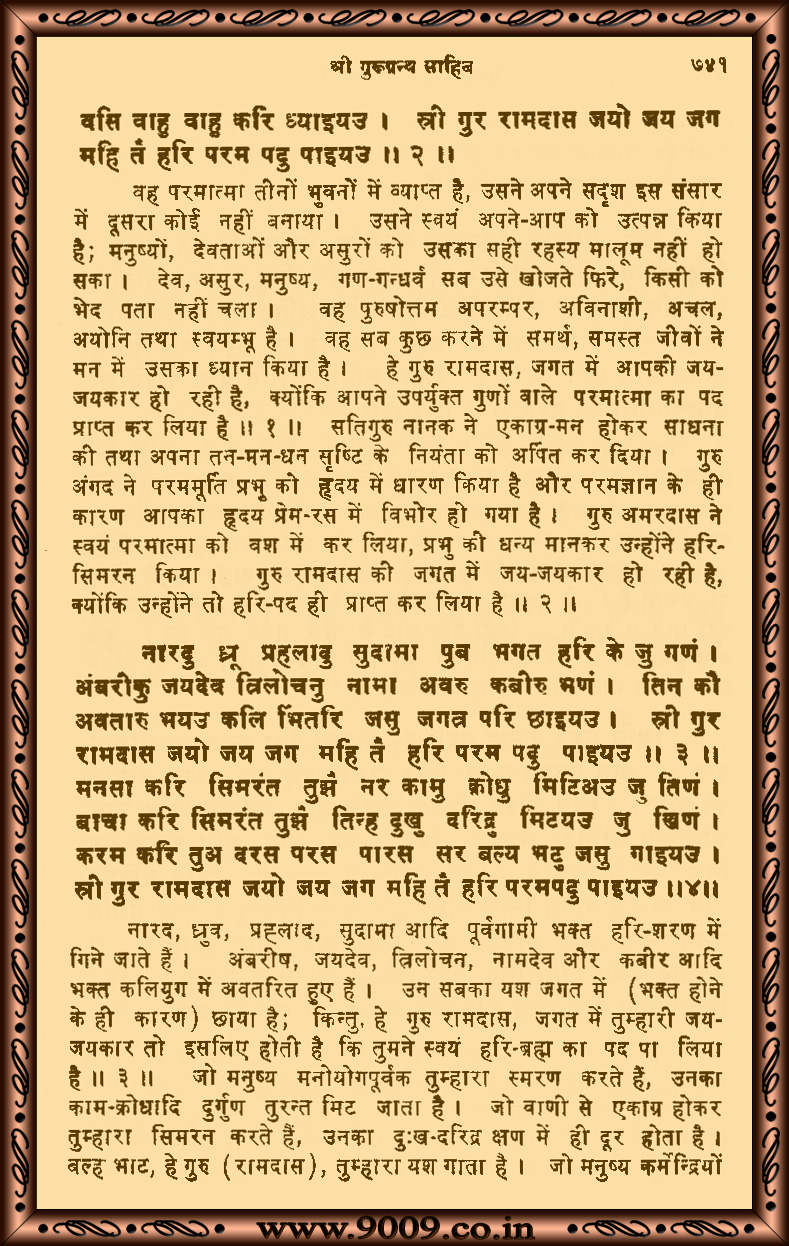 श्री गुरूग्रन्थ साहिब ७४१
वसि वाहु वाहु करि ध्याइयउ । स्री गुर रामदास जयो जय जग
महि तैं हरि परम पदु पाइयउ ॥ २ ॥
वह परमात्मा तीनों भुवनों में व्याप्त है, उसने अपने सदृश इस संसार
में दूसरा कोई नहीं बनाया । उसने स्वयं अपने-आप को उत्पन्न किया
है; मनुष्यों, देवताओं और असुरों को उसका सही रहस्य मालूम नहीं हो
सका । देव, असुर, मनुष्य, गण-गन्धर्व सब उसे खोजते फिरे, किसी को
भेद पता नहीं चला । वह पुरुषोत्तम अपरम्पर, अविनाशी, अचल,
अयोनि तथा स्वयम्भू है । वह सब कुछ करने में समर्थ, समस्त जीवों ने
मन में उसका ध्यान किया है । हे गुरु रामदास, जगत में आपकी जय-
जयकार हो रही है, क्योंकि आपने उपर्युक्त गुणों वाले परमात्मा का पद
प्राप्त कर लिया है ॥ १ ॥ सतिगुरु नानक ने एकाग्र-मन होकर साधना
की तथा अपना तन-मन-धन सृष्टि के नियंता को अर्पित कर दिया । गुरु
अंगद ने परममूर्ति प्रभु को हृदय में धारण किया है और परमज्ञान के ही
कारण आपका हृदय प्रेम-रस में विभोर हो गया है । गुरु अमरदास ने
स्वयं परमात्मा को वश में कर लिया, प्रभु की धन्य मानकर उन्होंने हरि-
सिमरन किया । गुरु रामदास की जगत में जय-जयकार हो रही है,
क्योंकि उन्होंने तो हरि-पद ही प्राप्त कर लिया है ॥ २ ॥
नारदु ध्रू प्रहलादु सुदामा पुब भगत हरि के जु गणं ।
अंबरीकु जयदेव त्रिलोचनु नामा अवरु कबीरु भणं । तिन कौ
अवतारु भयउ कलि भिंतरि जसु जगत्र परि छाइयउ । स्री गुर
रामदास जयो जय जग महि तैं हरि परम पदु पाइयउ ॥ ३ ॥
मनसा करि सिमरंत तुझैं नर कामु क्रोधु मिटिअउ जु तिणं ।
बाचा करि सिमरंत तुझैं तिन्ह दुखु दरिद्रु मिटयउ जु खिणं ।
करम करि तुअ दरस परस पारस सर बल्य भटु जसु गाइयउ ।
स्री गुर रामदास जयो जय जग महि तैं हरि परमपदु पाइयउ ॥४॥
नारद, ध्रुव, प्रह्लाद, सुदामा आदि पूर्वगामी भक्त हरि-शरण में
गिने जाते हैं । अंबरीष, जयदेव, त्रिलोचन, नामदेव और कबीर आदि
भक्त कलियुग में अवतरित हुए हैं । उन सबका यश जगत में (भक्त होने
के ही कारण) छाया है; किन्तु, हे गुरु रामदास, जगत में तुम्हारी जय-
जयकार तो इसलिए होती है कि तुमने स्वयं हरि-ब्रह्म का पद पा लिया
है ॥ ३ ॥ जो मनुष्य मनोयोगपूर्वक तुम्हारा स्मरण करते हैं, उनका
काम-क्रोधादि दुर्गुण तुरन्त मिट जाता है । जो वाणी से एकाग्र होकर
तुम्हारा सिमरन करते हैं, उनका दुःख-दरिद्र क्षण में ही दूर होता है ।
बल्ह भाट, हे गुरु (रामदास), तुम्हारा यश गाता है । जो मनुष्य कर्मेन्द्रियों
www.9009.co.in